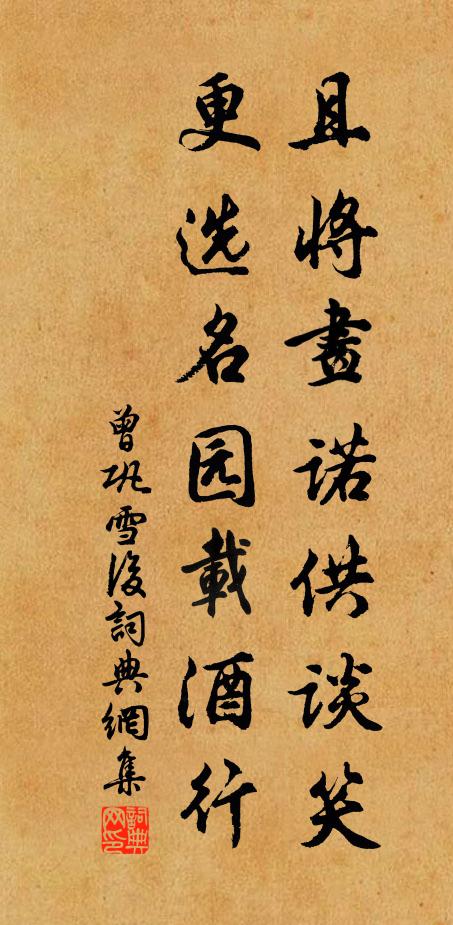 且将畫诺供谈笑
更选名园載酒行
曾巩雪後詞典網集
詞典网印